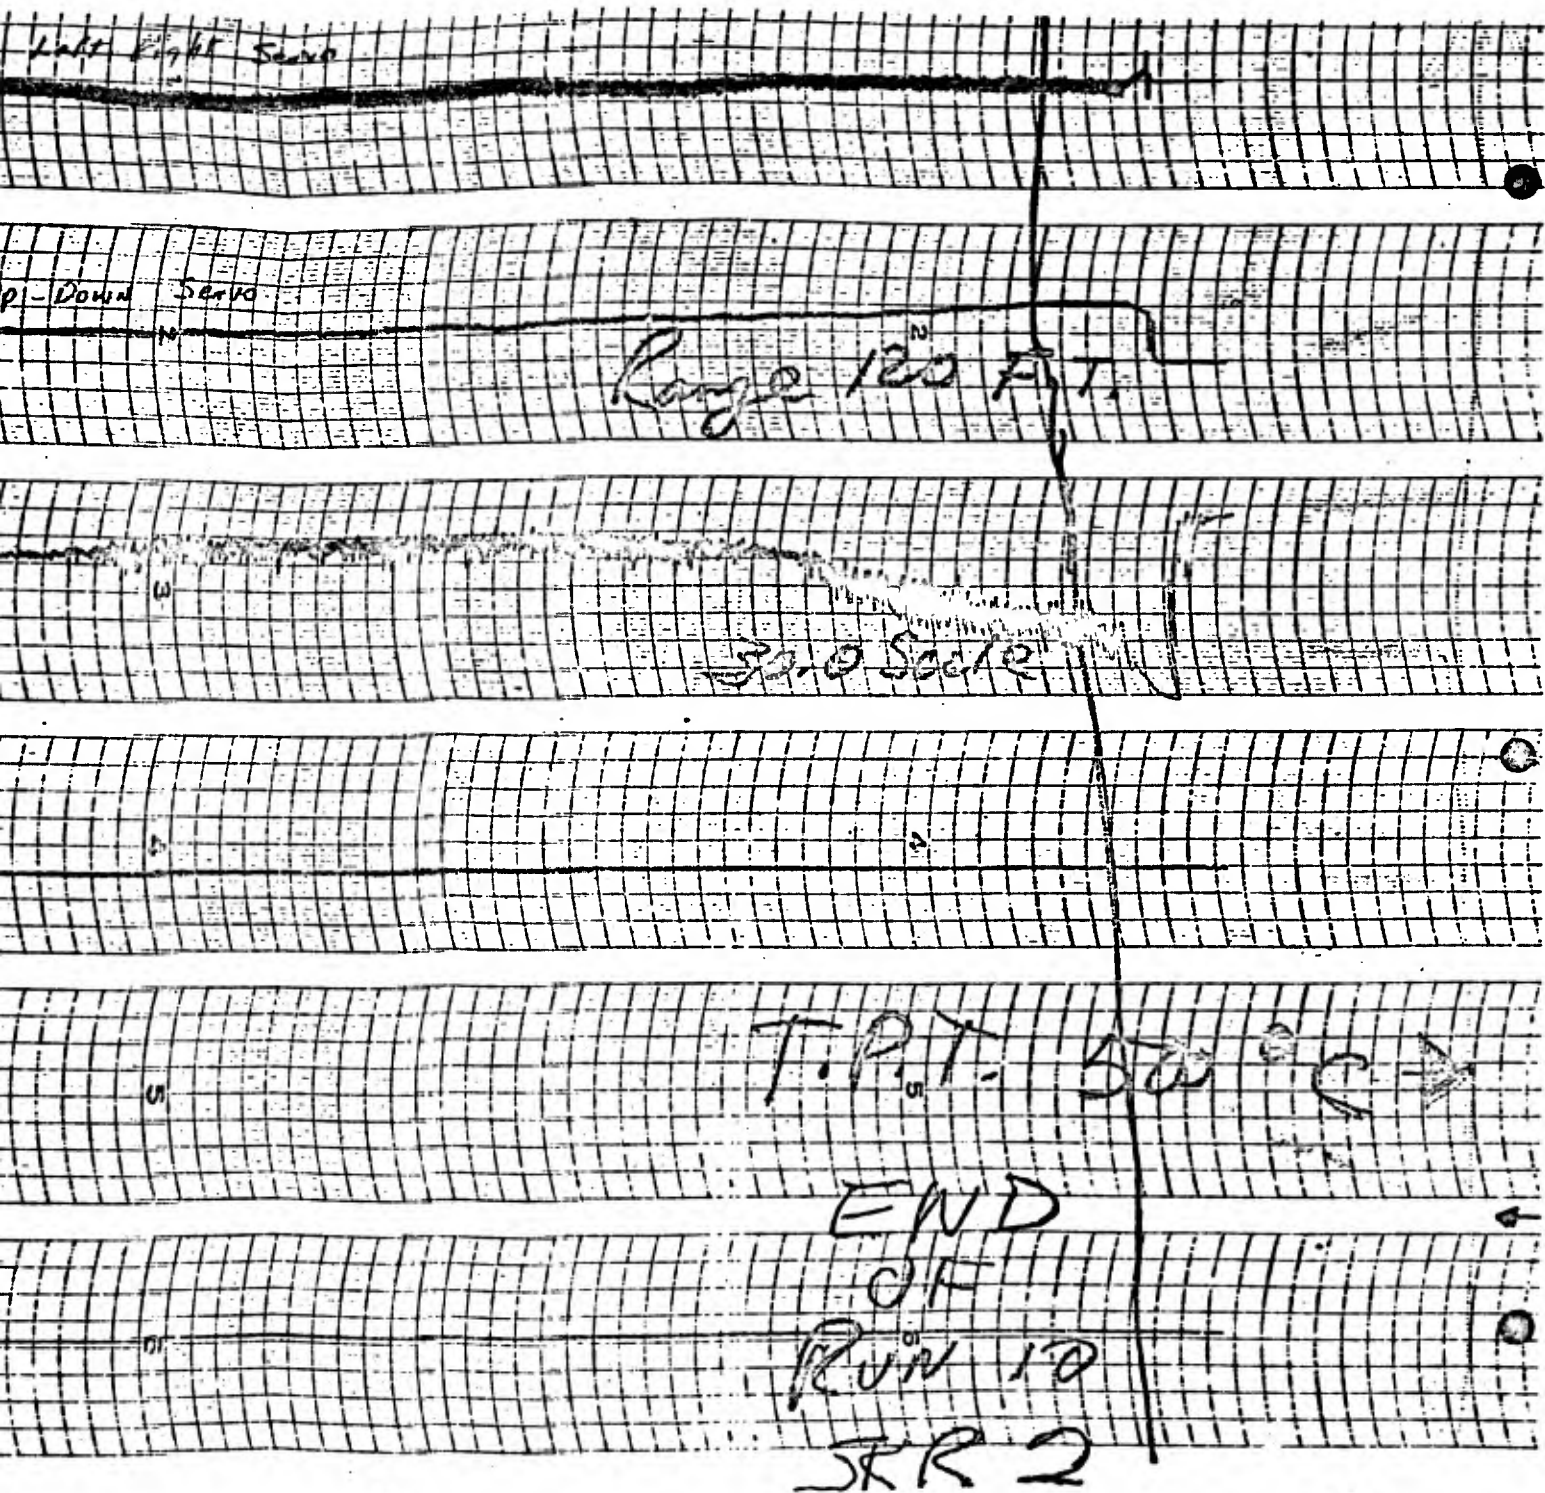 Left Right Servo
p-Down Servo
2
2
Range 120 FT.
3
30.0 Scale
4
4
T.P.T. 50 °C
5
5
END
OF
6
6
RUN 10
SKR 2